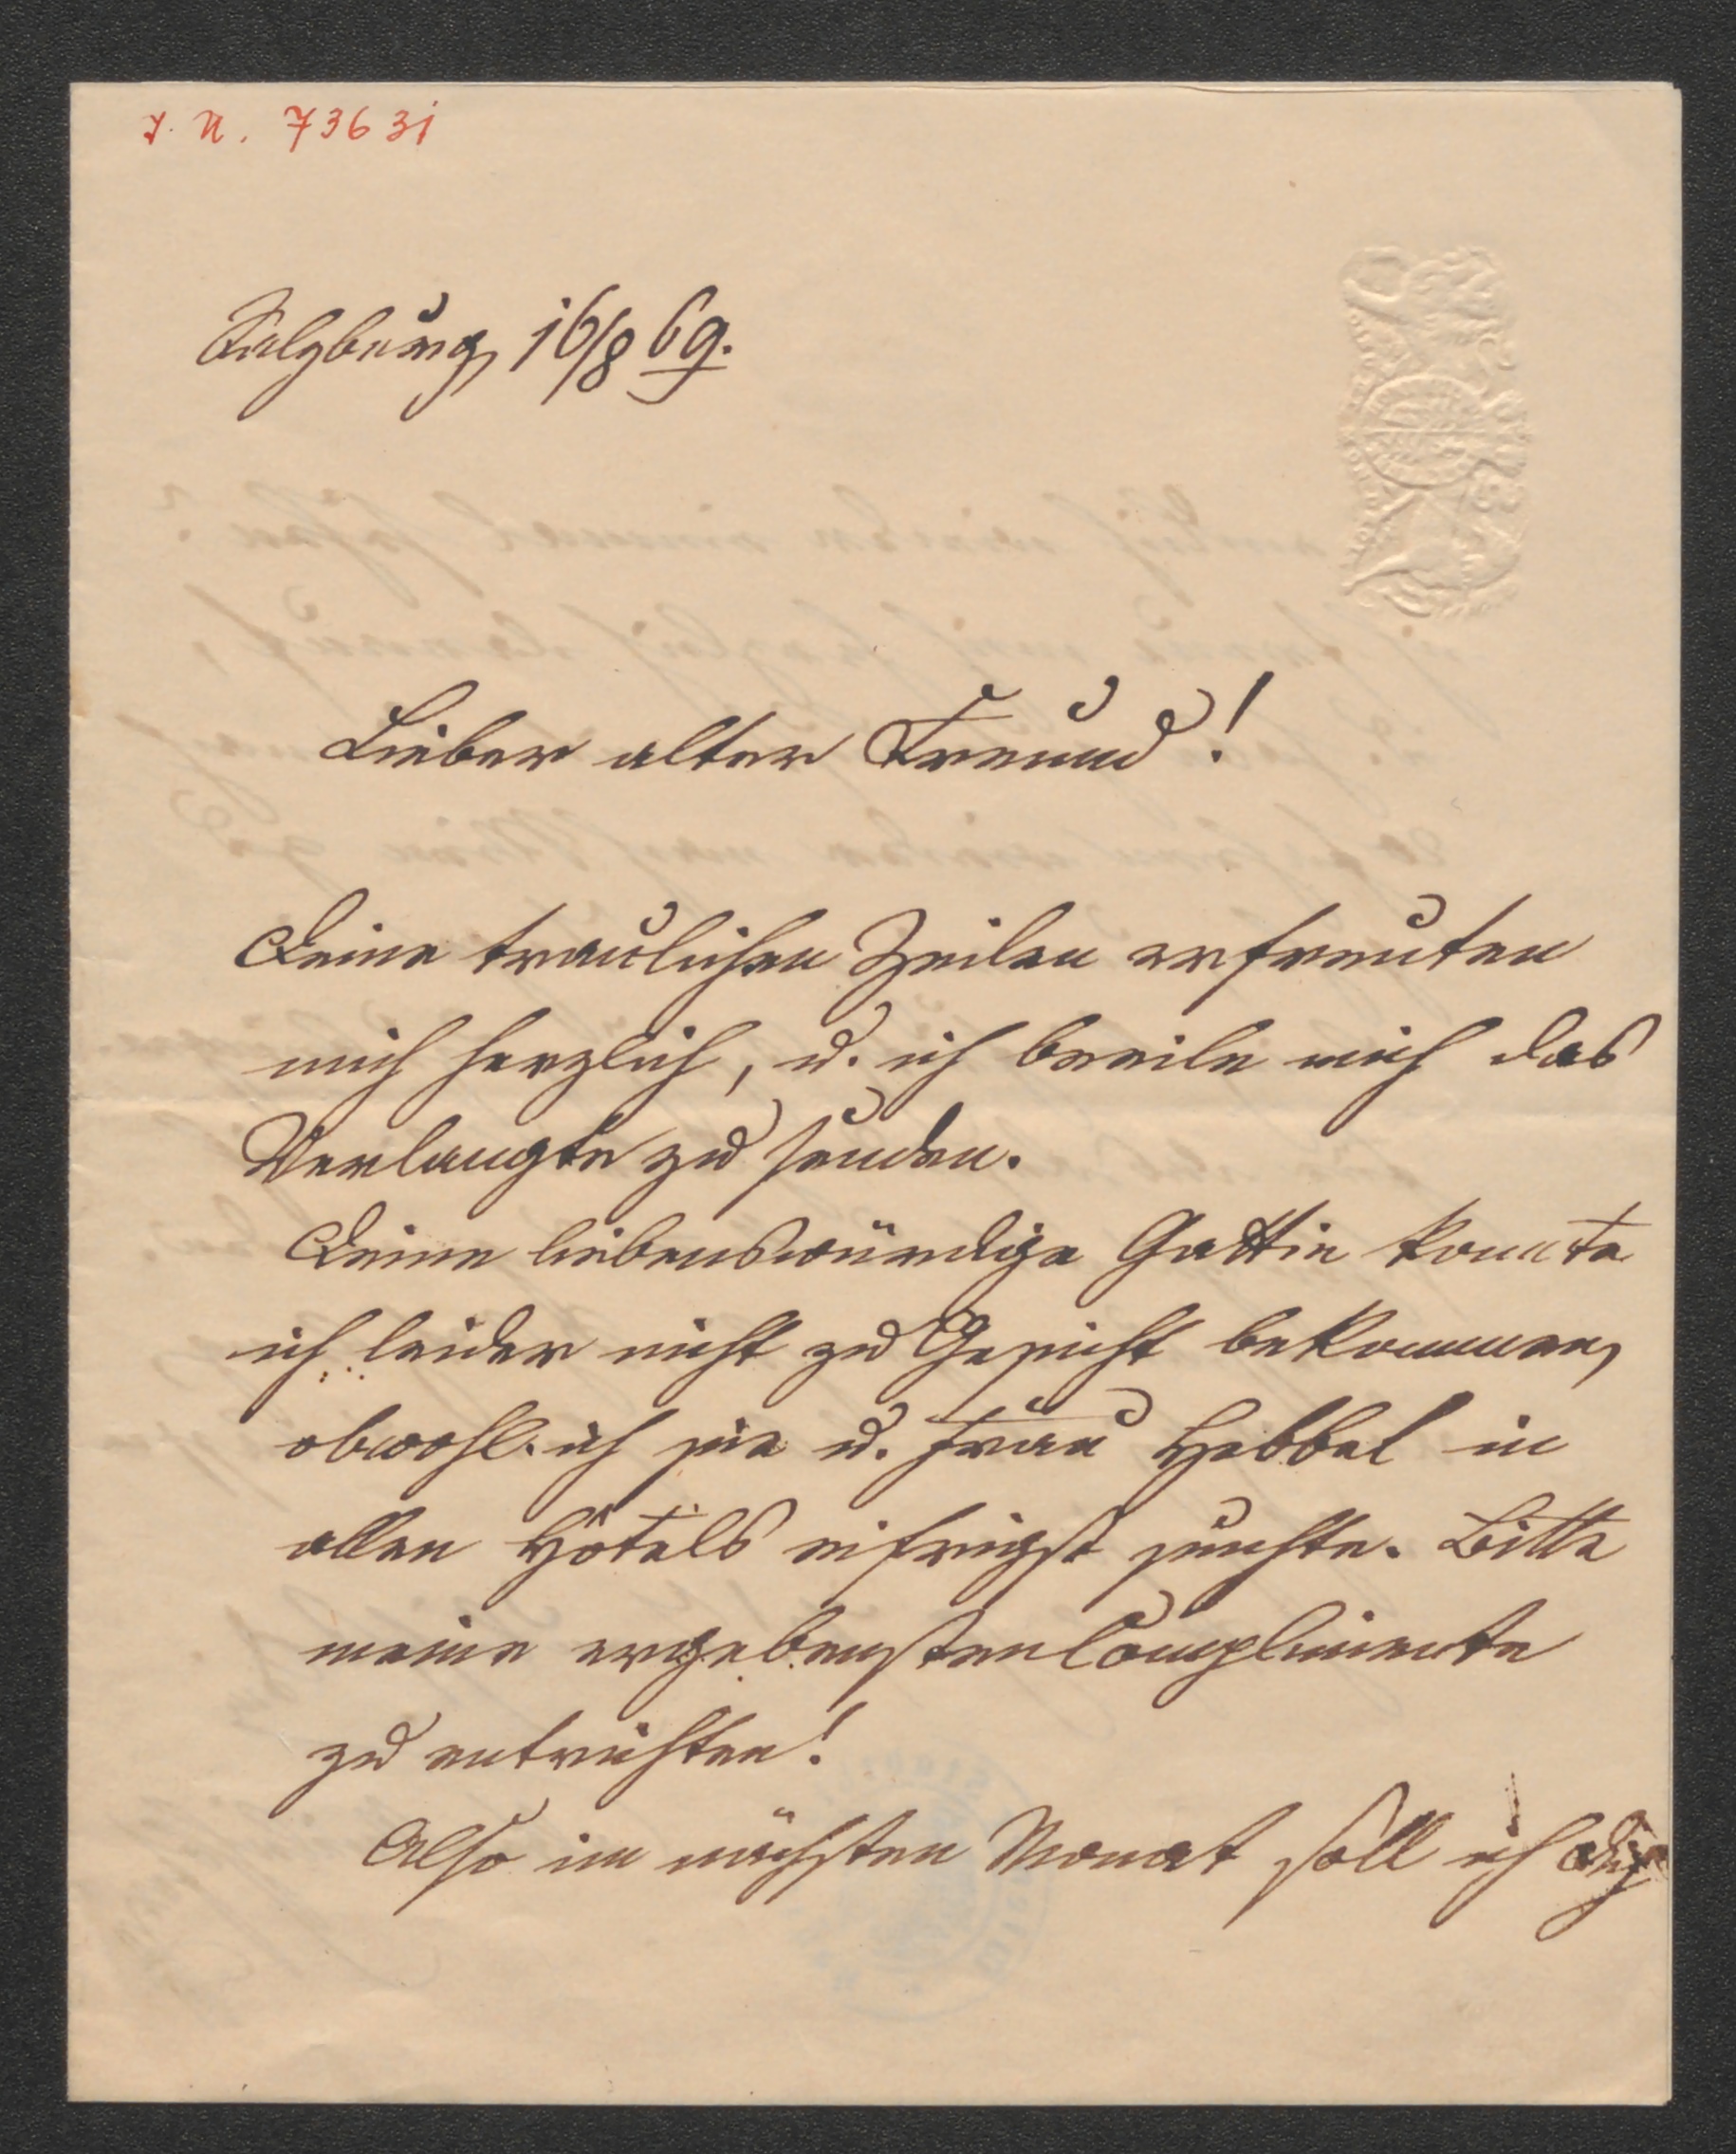 I. N. 73631
Salzburg, 16/8 69.
Lieber alter Freund!
Deine traulichen Zeilen erfreuten
mich herzlich, u. ich beeile mich das
Verlangte zu senden.
Deine liebenswürdige Gattin konnte
ich leider nicht zu Gesicht bekommen,
obwohl ich sie u. Frau Hebbel in
allen Hôtels eifrigst suchte. Bitte
meine ergebensten Complimente
zu entrichten!
Also im nächsten Monat soll ich Dich